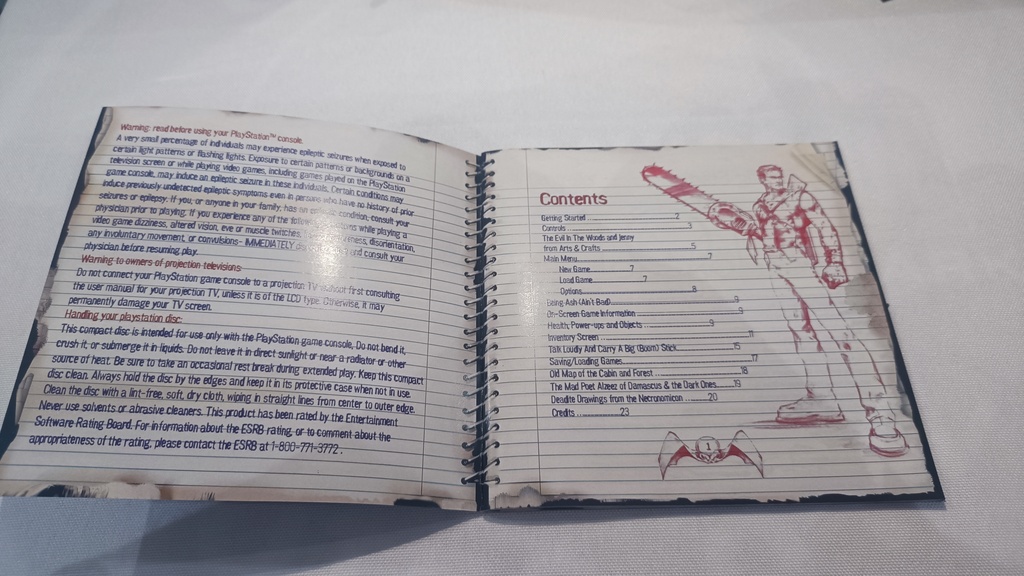 Warning: read before using your PlayStation™ console.
A very small percentage of individuals may experience epileptic seizures when exposed to
certain light patterns or flashing lights. Exposure to certain patterns or backgrounds on a
television screen or while playing video games, including games played on the PlayStation
game console, may induce an epileptic seizure in these individuals. Certain conditions may
induce previously undetected epileptic symptoms even in persons who have no history of prior
seizures or epilepsy. If you, or anyone in your family, has an condition, consult your
physician prior to playing. If you experience any of the while playing a
video game dizziness, altered vision, eye or muscle twitches, disorientation,
any involuntary movement, or convulsions- IMMEDIATELY and consult your
physician before resuming play.
Warning to owners of projection televisions:
Do not connect your PlayStation game console to a projection TV without first consulting
the user manual for your projection TV, unless it is of the LCD type. Otherwise, it may
permanently damage your TV screen.
Handling your playstation disc:
This compact disc is intended for use only with the PlayStation game console. Do not bend it,
crush it, or submerge it in liquids. Do not leave it in direct sunlight or near a radiator or other
source of heat. Be sure to take an occasional rest break during extended play. Keep this compact
disc clean. Always hold the disc by the edges and keep it in its protective case when not in use.
Clean the disc with a lint-free, soft, dry cloth, wiping in straight lines from center to outer edge.
Never use solvents or abrasive cleaners. This product has been rated by the Entertainment
Software Rating Board. For information about the ESRB rating, or to comment about the
appropriateness of the rating, please contact the ESRB at 1-800-771-3772.
Contents
Getting Started 2
Controls 3
The Evil In The Woods and Jenny
from Arts & Crafts 5
Main Menu 7
New Game 7
Load Game 7
Options 8
Being Ash (Ain't Bad) 9
On-Screen Game Information 9
Health, Power-ups and Objects 9
Inventory Screen 11
Talk Loudly And Carry A Big (Boom) Stick 15
Saving/Loading Games 17
Old Map of the Cabin and Forest 18
The Mad Poet Alzeez of Damascus & the Dark Ones 19
Deadite Drawings from the Necronomicon 20
Credits 23
1